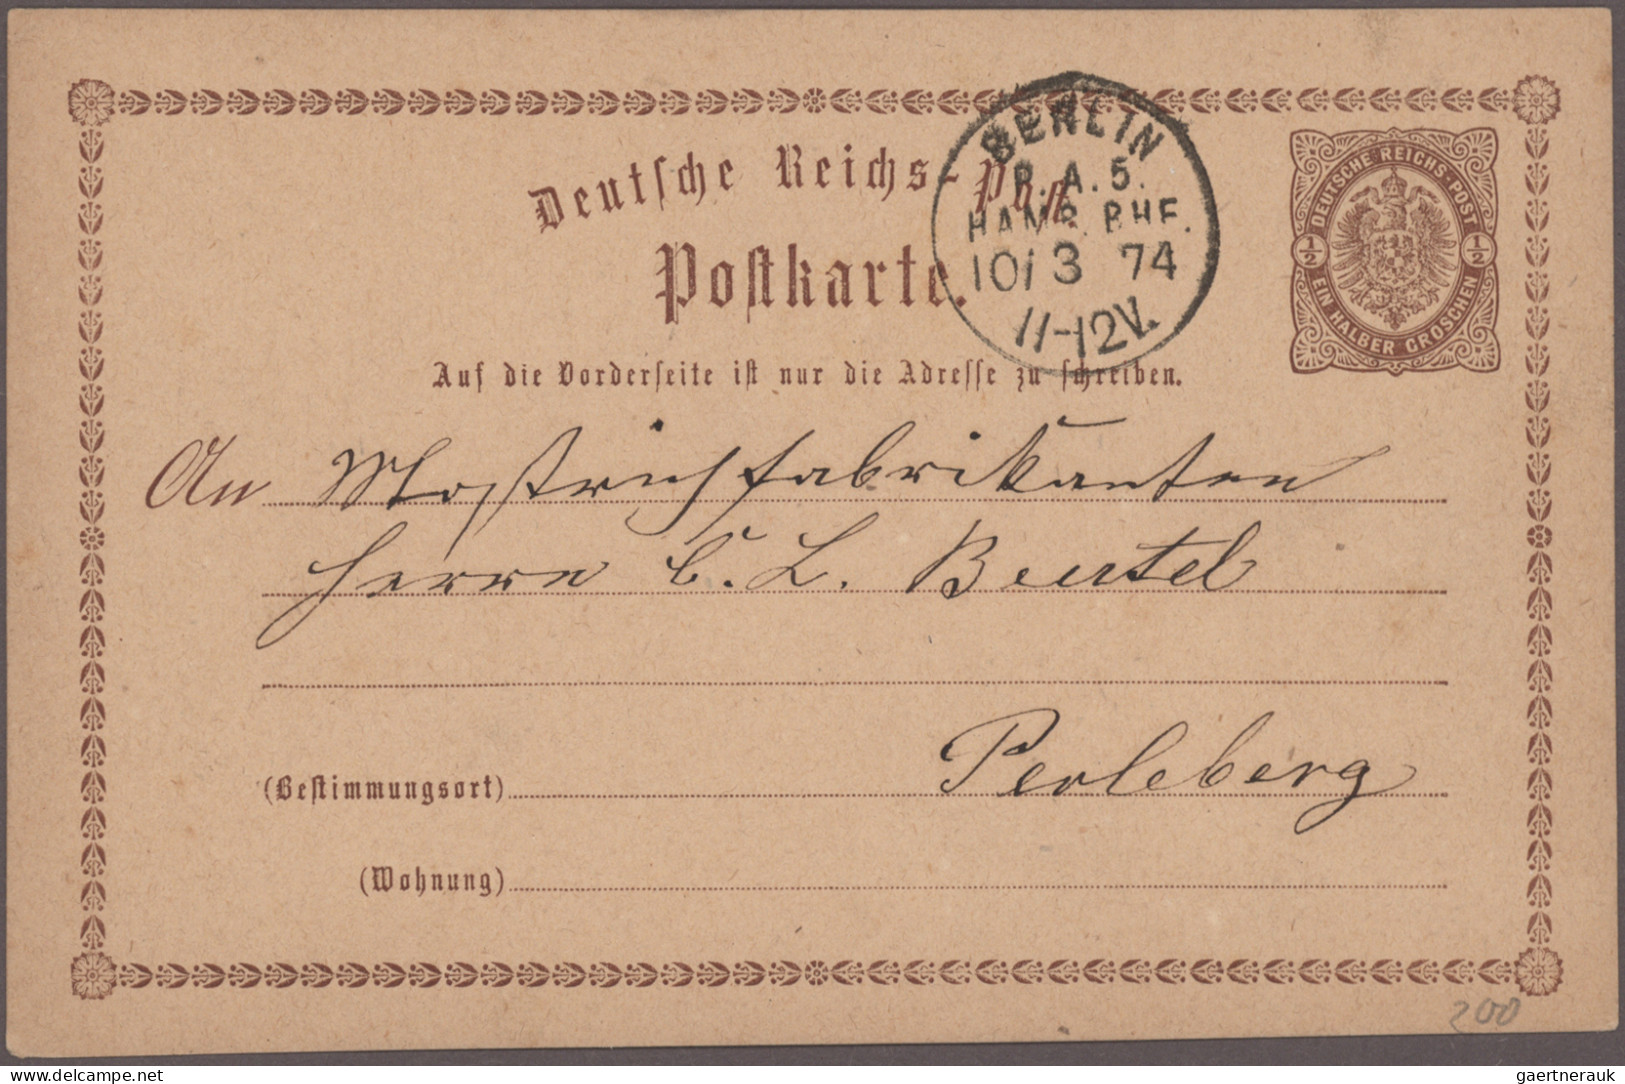 Deutsche Reichs-Post
Postkarte.
Auf die Vorderseite ist nur die Adresse zu schreiben.
BERLIN
P.A.5.
HAMB.BHF.
10/3 74
11-12V.
DEUTSCHE REICHS-POST
1/2 1/2
EIN HALBER GROSCHEN
An Mostrichfabrikanten
Herrn C. L. Beutel
Perleberg
(Bestimmungsort)
(Wohnung)
200
www.delcampe.net
gaertnerauk